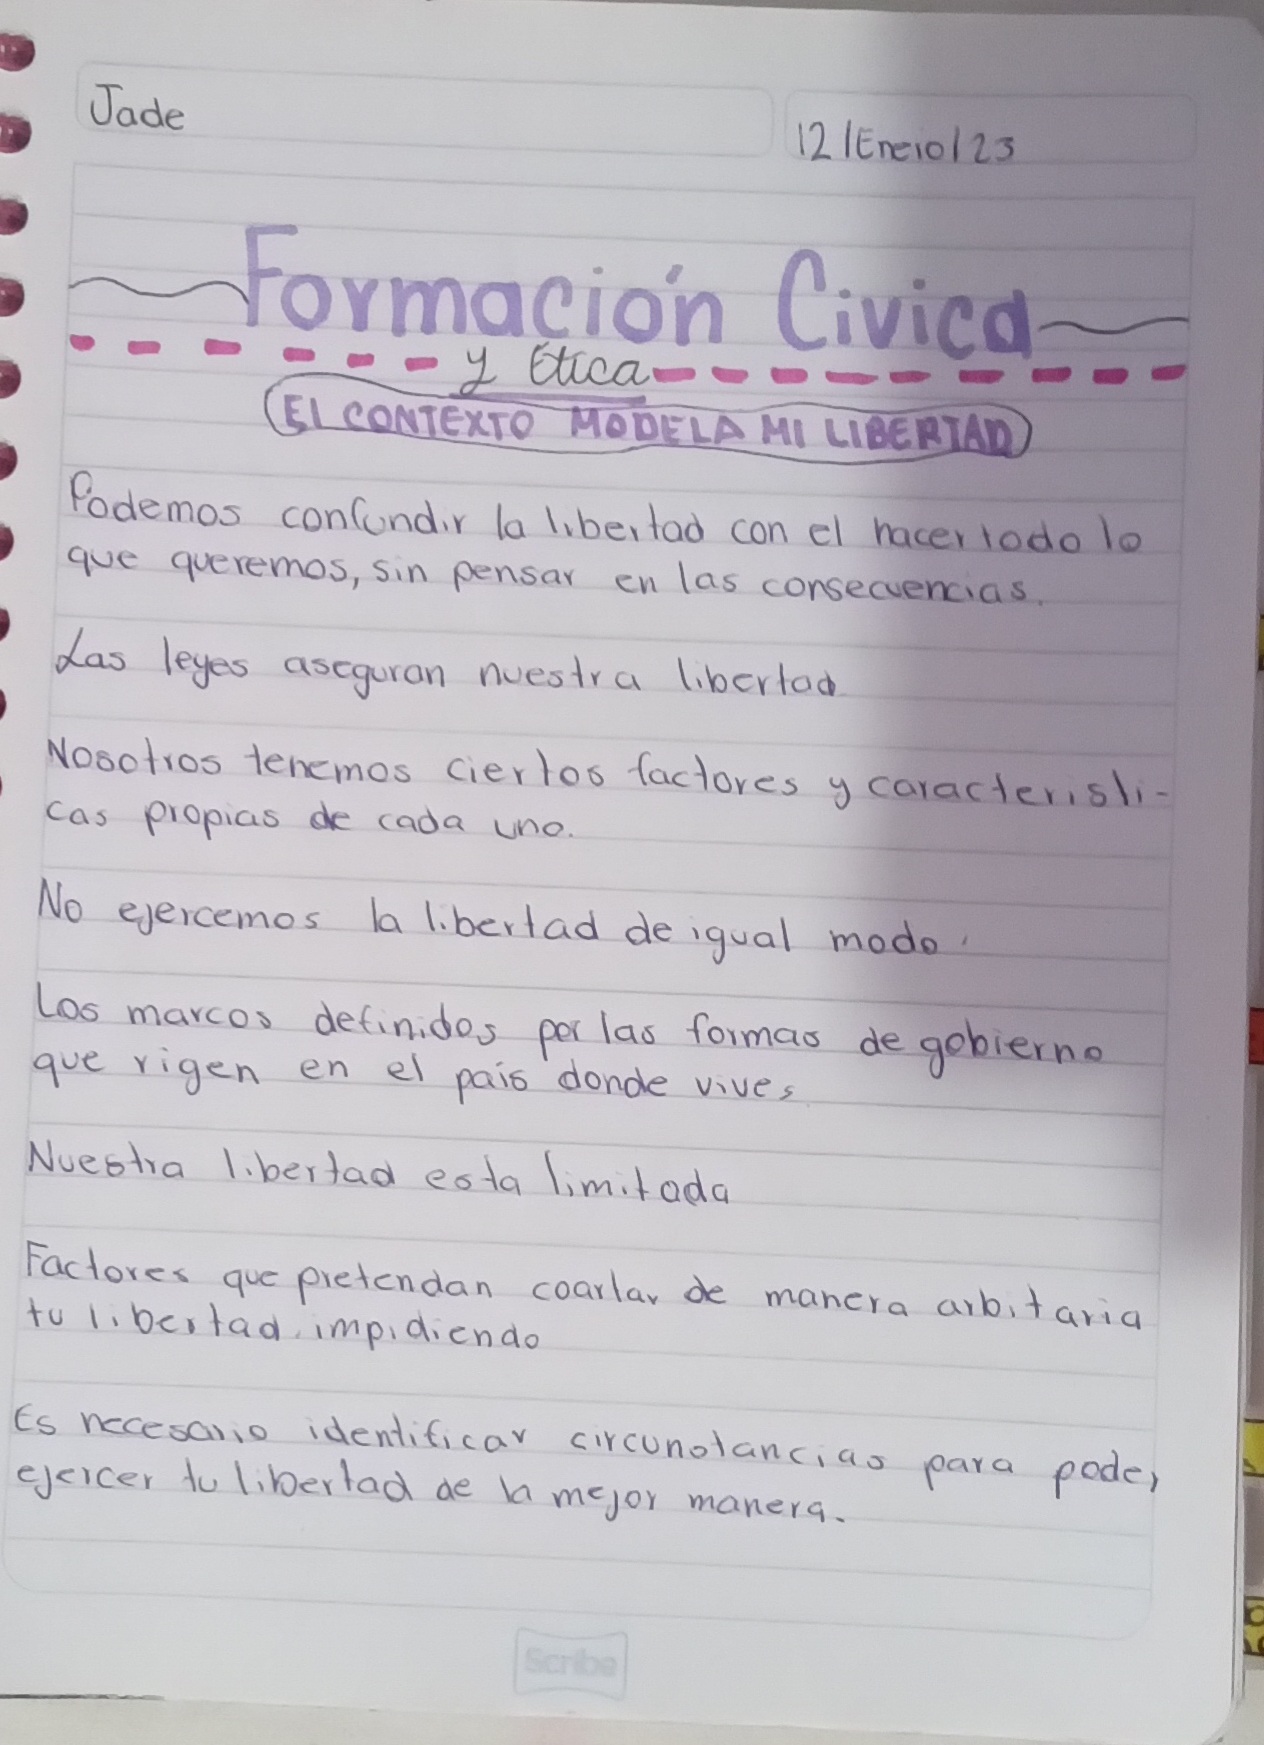 Jade
12/Enero/23
Formación Civica
y Etica
EL CONTEXTO MODELA MI LIBERTAD
Podemos confundir la libertad con el hacer todo lo
que queremos, sin pensar en las consecuencias.
Las leyes aseguran nuestra libertad
Nosotros tenemos ciertos factores y caracteristi-
cas propias de cada uno.
No ejercemos la libertad de igual modo.
Los marcos definidos por las formas de gobierno
que rigen en el pais donde vives
Nuestra libertad esta limitada
Factores que pretendan coartar de manera arbitaria
tu libertad, impidiendo
Es necesario identificar circunstancias para poder
ejercer tu libertad de la mejor manera.
Scribe